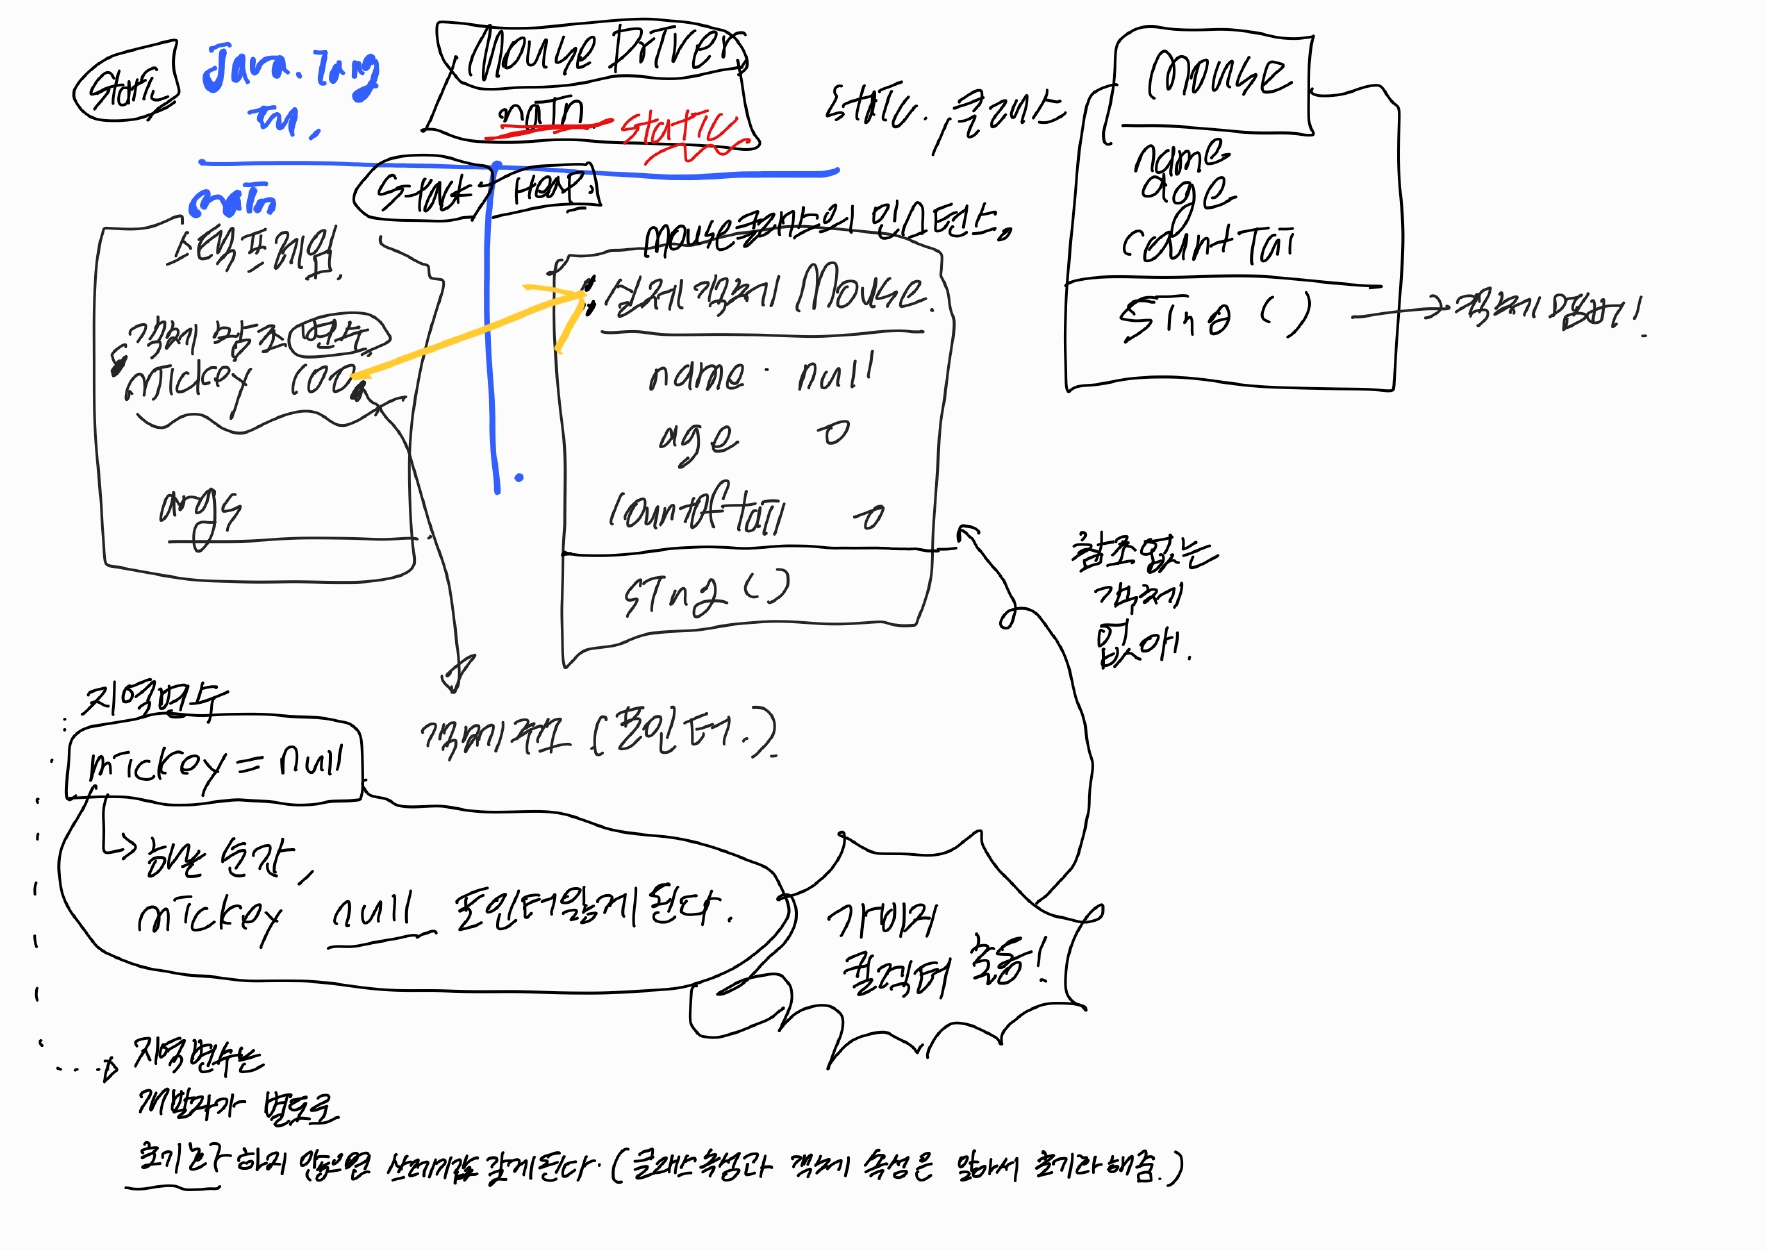 static
Java.lang
MouseDriver
main static
static. 클래스
Mouse
name
age
countTai
sing ()
객체 멤버!
Stack
Heap.
main
스택프레임.
객체 참조 변수
mickey 100
args
mouse클래스의 인스턴스.
: 실제 객체 Mouse.
name null
age 0
countoftail 0
sing ()
참조없는
객체
없애!
객체주소 (포인터.)
지역변수
mickey = null
하는 순간,
mickey null 포인터 갖게된다.
가비지
컬렉터 출동!
지역변수는
개발자가 별도로
초기화 하지 않으면 쓰레기값 갖게된다. (클래스 속성과 객체 속성은 알아서 초기화해줌.)